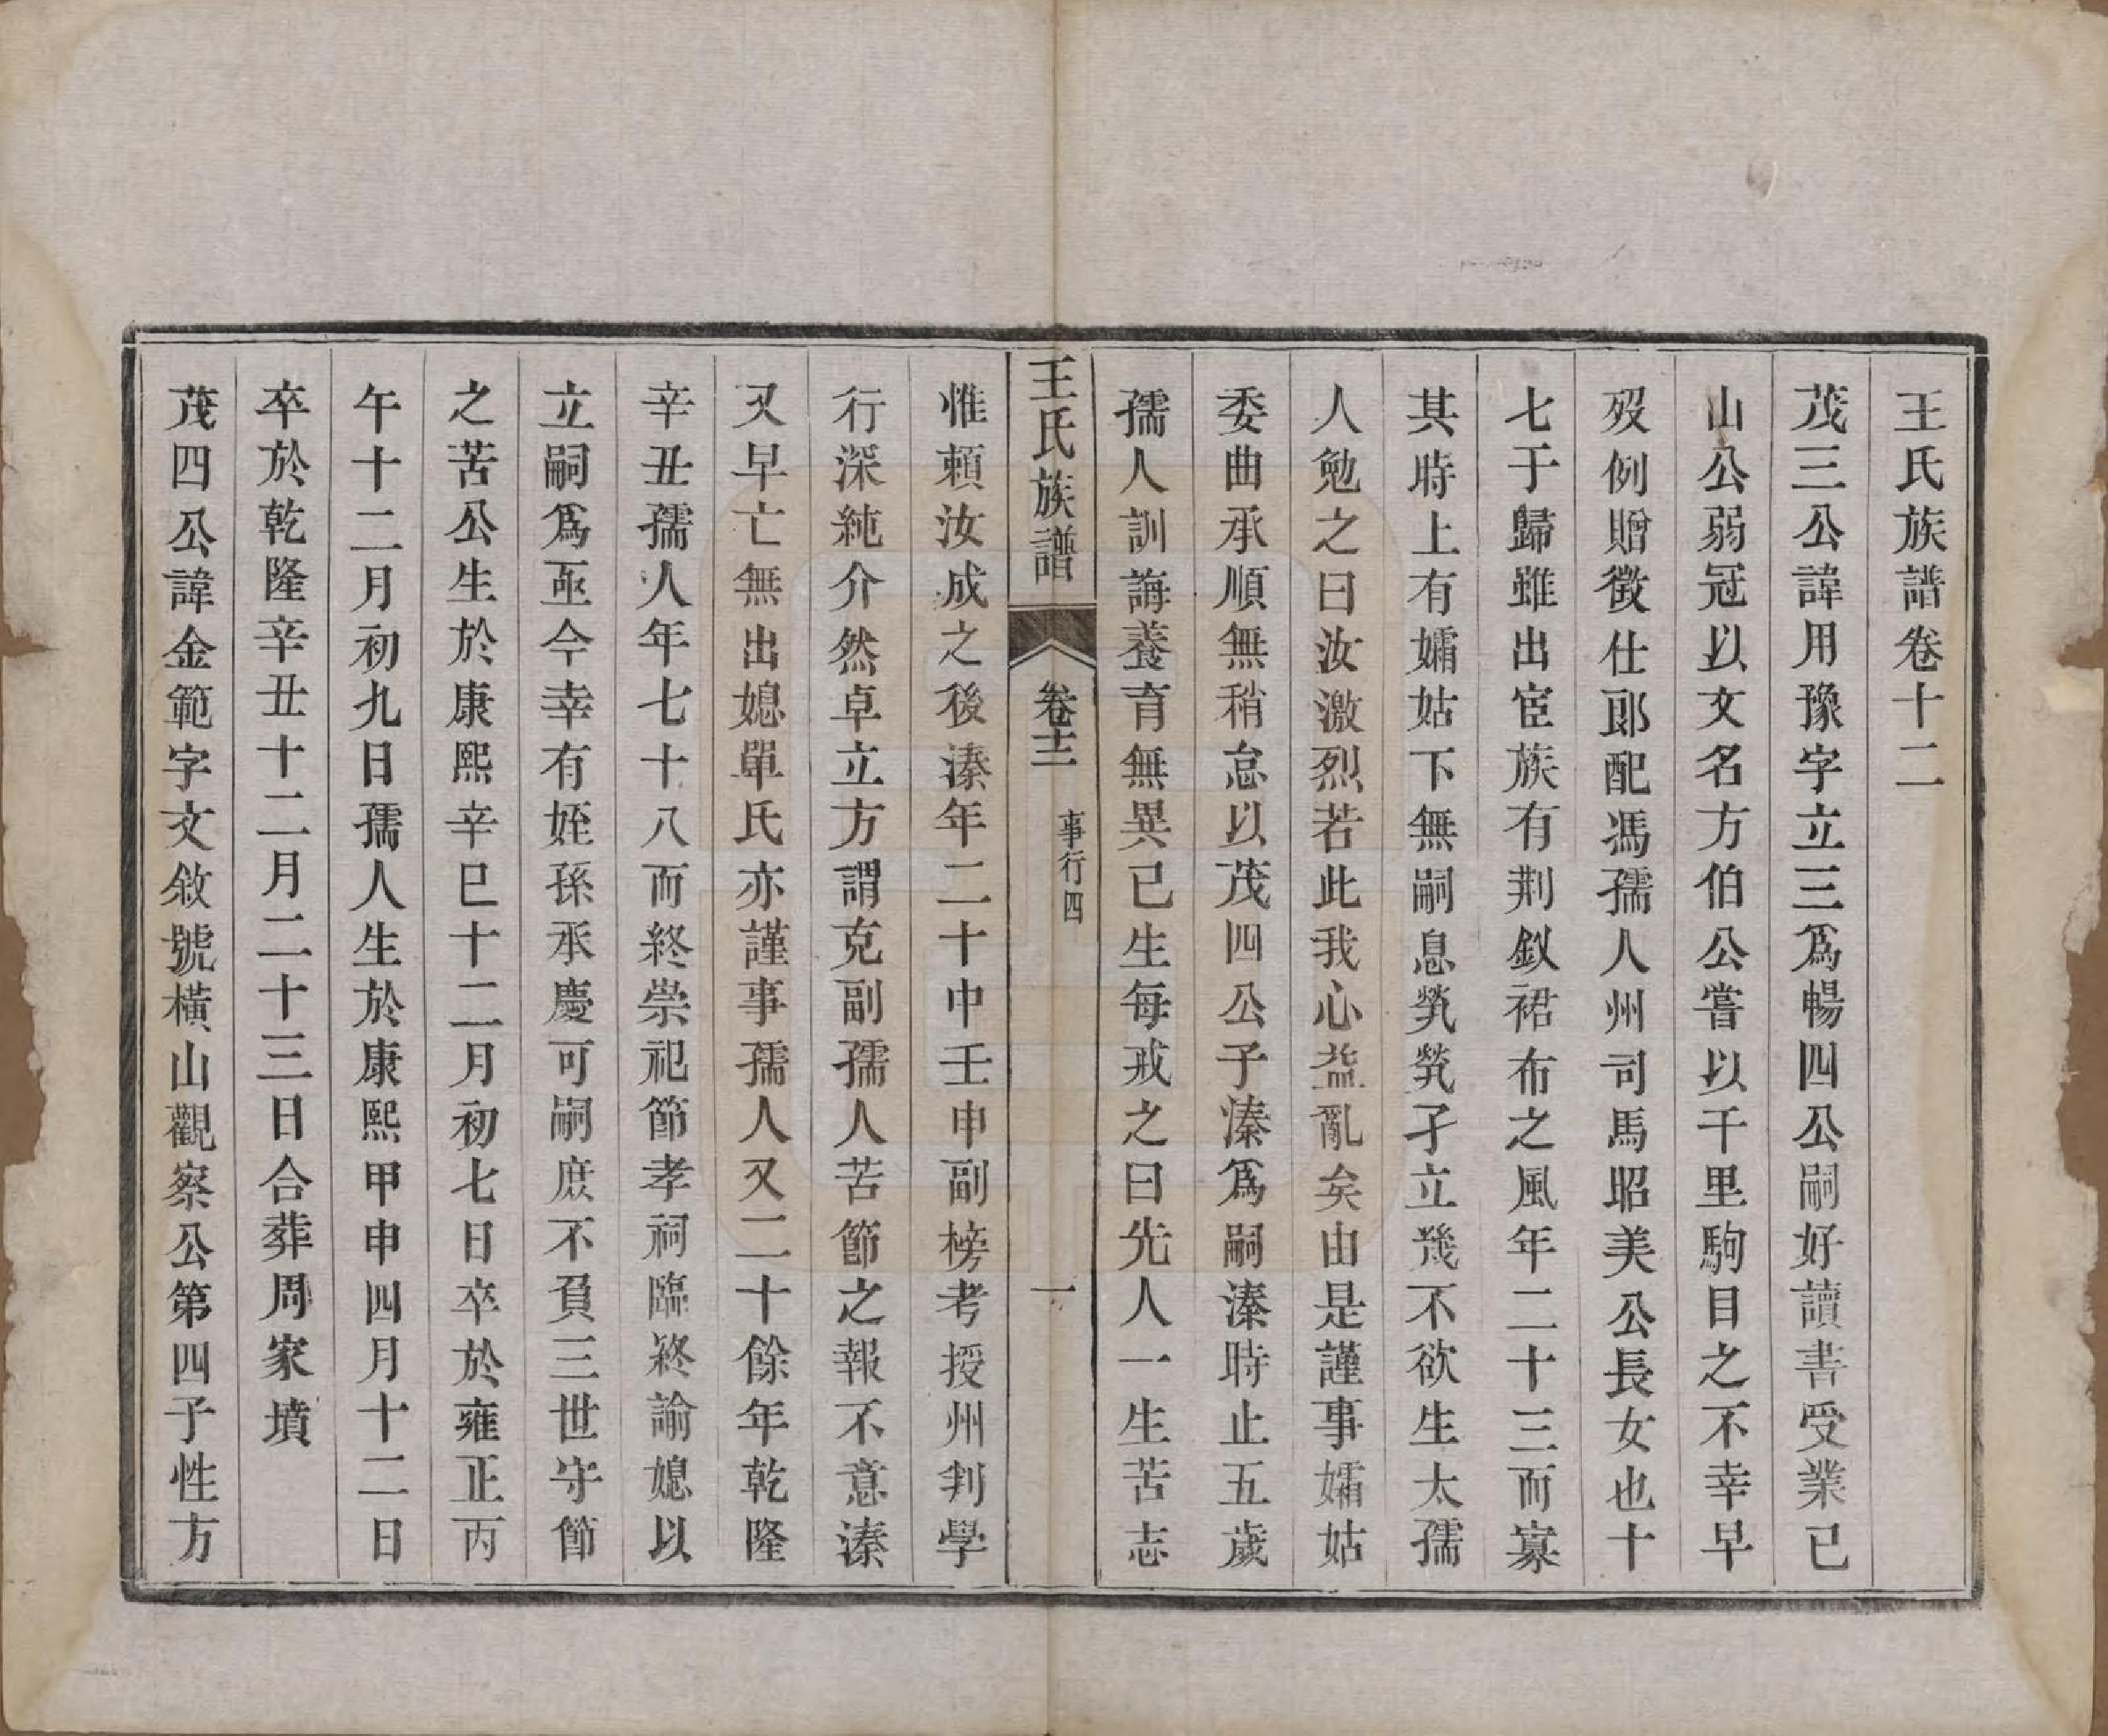 王氏族譜卷十二
茂三公諱用豫字立三爲暢四公嗣好讀書受業已
山公弱冠以文名方伯公嘗以千里駒目之不幸早
歿例贈徵仕郎配馮孺人州司馬昭美公長女也十
七于歸雖出宦族有荆釵裙布之風年二十三而寡
其時上有孀姑下無嗣息煢煢孑立幾不欲生太孺
人勉之曰汝激烈若此我心益亂矣由是謹事孀姑
委曲承順無稍怠以茂四公子溱爲嗣溱時止五歲
孺人訓誨養育無異已生每戒之曰先人一生苦志
王氏族譜 卷十二 事行四 一
惟賴汝成之後溱年二十中壬申副榜考授州判學
行深純介然卓立方謂克副孺人苦節之報不意溱
又早亡無出媳單氏亦謹事孺人又二十餘年乾隆
辛丑孺人年七十八而終崇祀節孝祠臨終諭媳以
立嗣爲亟今幸有姪孫承慶可嗣庶不負三世守節
之苦公生於康熙辛巳十二月初七日卒於雍正丙
午十二月初九日孺人生於康熙甲申四月十二日
卒於乾隆辛丑十二月二十三日合葬周家墳
茂四公諱金範字文敘號橫山觀察公第四子性方